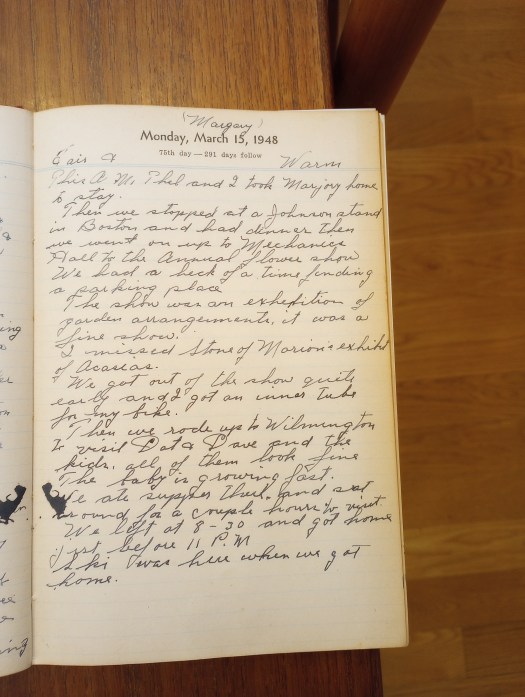 (Margary)
Monday, March 15, 1948
75th day — 291 days follow
Fair & Warm
This A.M. Thel and I took Marjory home
to stay.
Then we stopped at a Johnson stand
in Boston and had dinner then
we went on up to Mechanics
Hall to the Annual flower show
We had a heck of a time finding
a parking place
The show was an exhibition of
garden arrangements, it was a
fine show.
I missed Stone of Marion's exhibit
of Acacias.
We got out of the show quite
early and I got an inner tube
for my bike.
Then we rode up to Wilmington
to visit Dot & Dave and the
kids, all of them look fine
The baby is growing fast.
We ate supper there, and sat
around for a couple hours to visit.
We left at 8-30 and got home
just before 11 P.M
was here when we got
home.
ing
ing